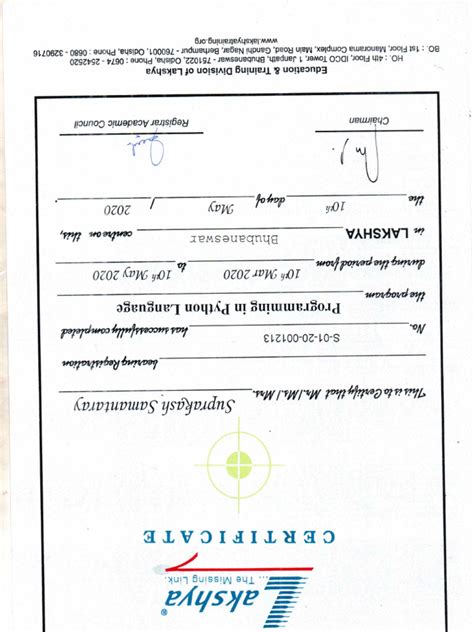 Lakshya®
... The Missing Link.
CERTIFICATE
This is to Certify that Mr./Ms./Mrs. Suprakash Samantaray
bearing Registration
No. S-01-20-001213 has successfully completed
the program Programming in Python Language
during the period from 10th Mar 2020 to 10th May 2020
in LAKSHYA Bhubaneswar centre on this,
the 10th day of May / 2020
Chairman Registrar Academic Council
Education & Training Division of Lakshya
HO. : 4th Floor, IDCO Tower, 1 Janpath, Bhubaneswar - 751022, Odisha, Phone : 0674 - 2542520
BO. : 1st Floor, Manorama Complex, Main Road, Gandhi Nagar, Berhampur - 760001, Odisha, Phone : 0680 - 3290716
www.lakshyatraining.org